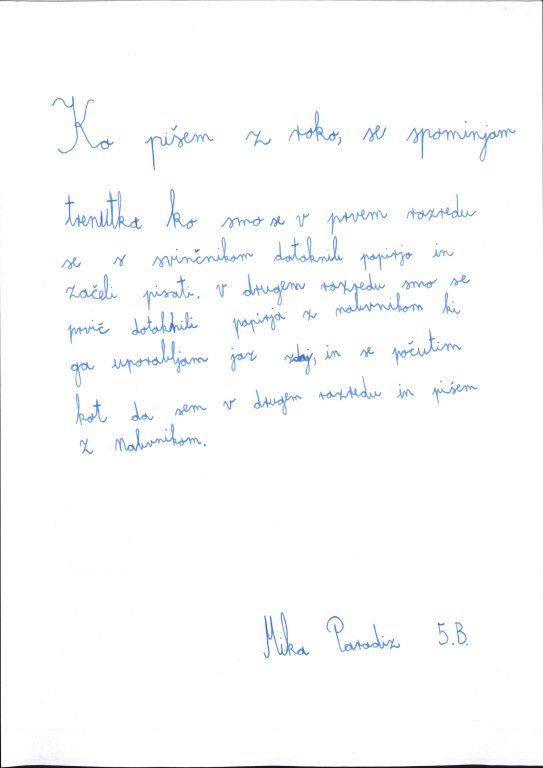 Ko pišem z roko, se spominjam
trenutka ko smo se v prvem razredu
se s svinčnikom dotaknili papirja in
začeli pisati. V drugem razredu smo se
prvič dotaknili papirja z nalivnikom ki
ga uporabljam jaz zdaj, in se počutim
kot da sem v drugem razredu in pišem
z nalivnikom.
Mika Paradiz 5.B